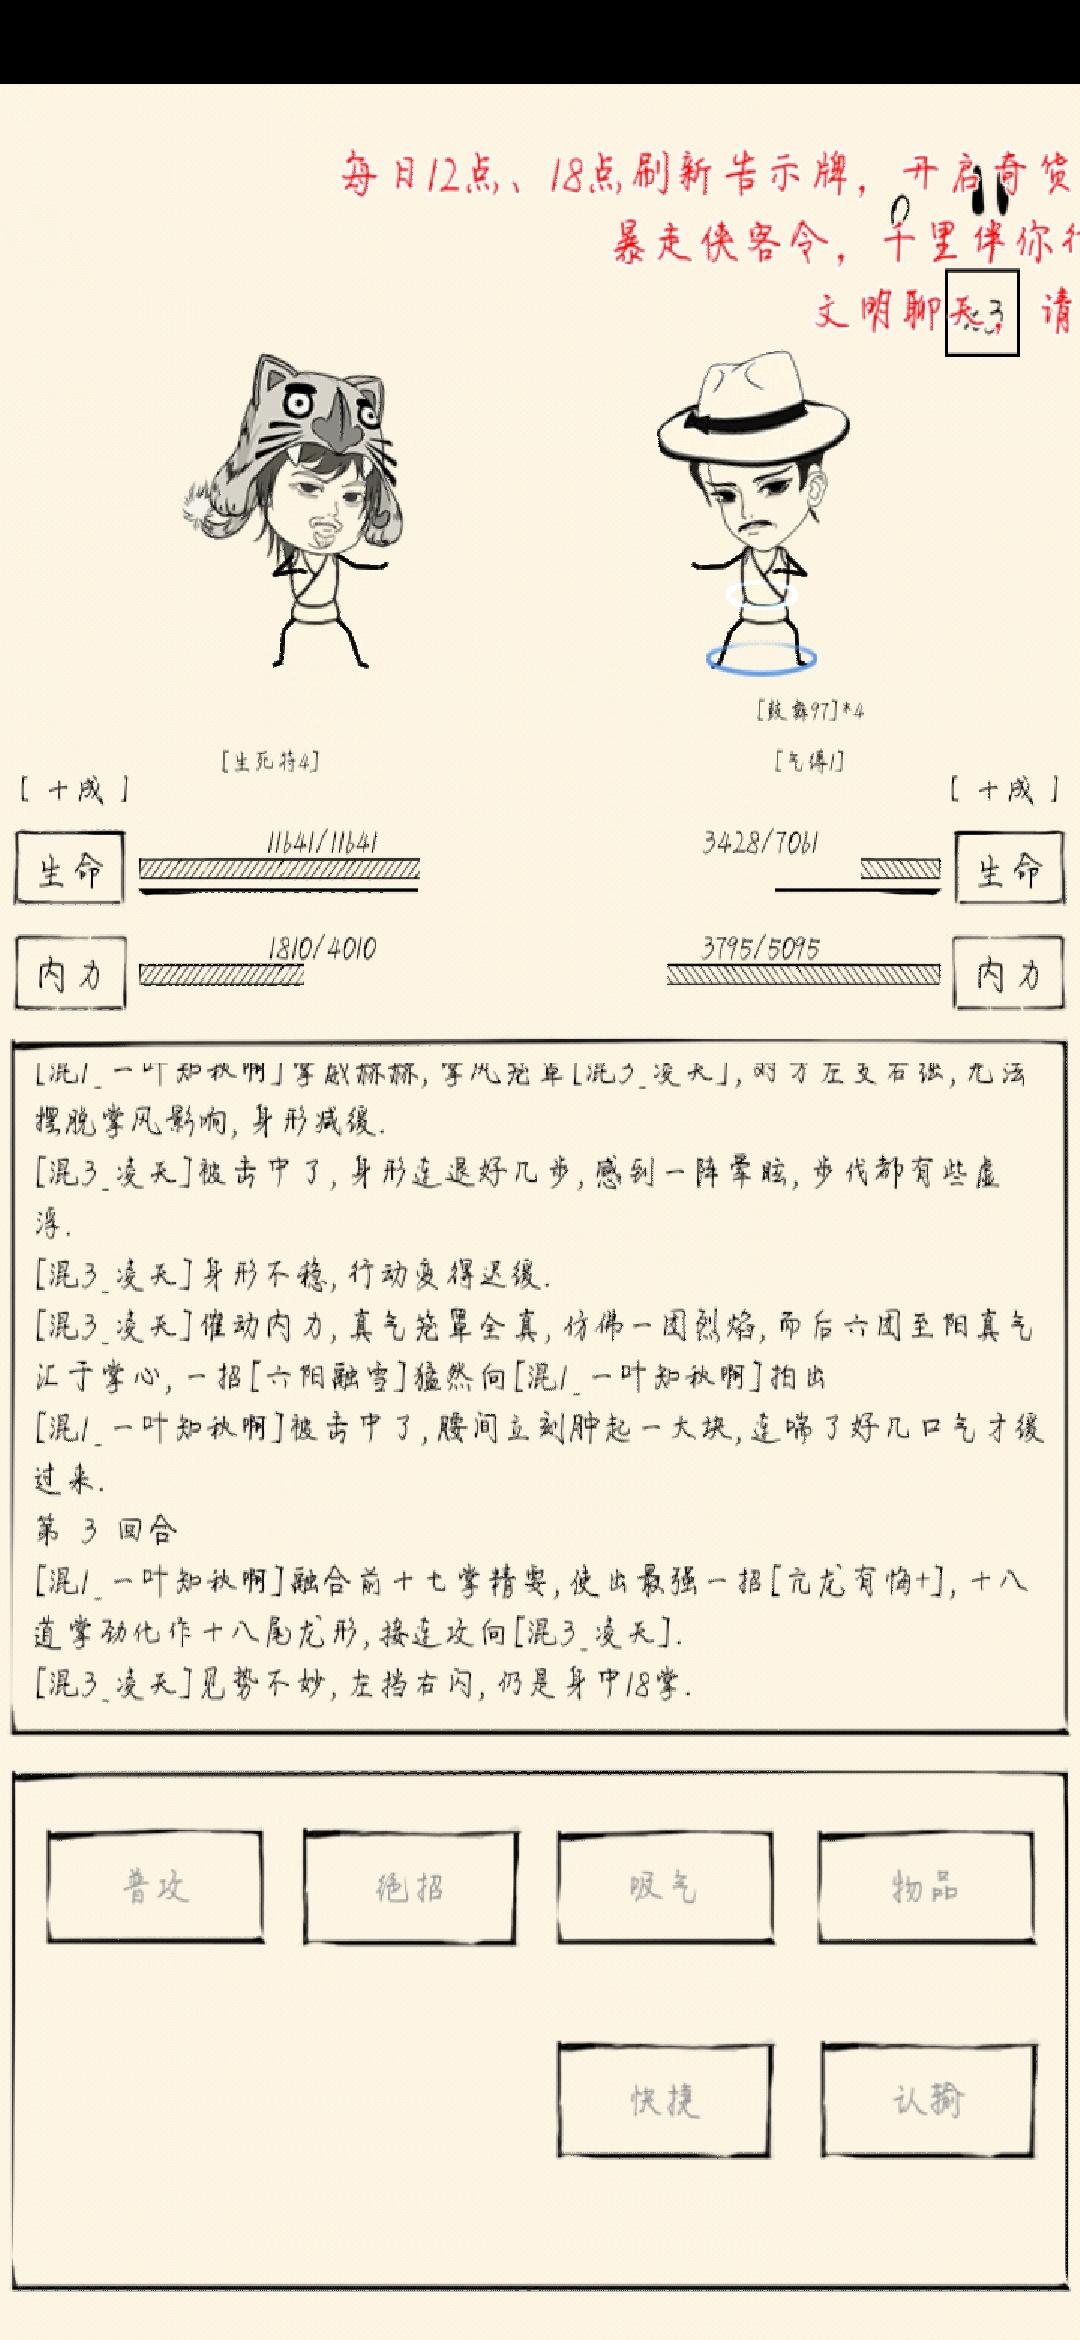 每日12点、18点刷新告示牌，开启奇货
暴走侠客令，千里伴你行
文明聊天，请
[鼓舞97]*4
[生死符4]
[气缚1]
[十成]
[十成]
生命
11641/11641
3428/7061
生命
内力
1810/4010
3795/5095
内力
[混1_一叶知秋啊]掌威赫赫,掌风笼罩[混3_凌天],对方左支右绌,无法
摆脱掌风影响,身形减缓.
[混3_凌天]被击中了,身形连退好几步,感到一阵晕眩,步伐都有些虚
浮.
[混3_凌天]身形不稳,行动变得迟缓.
[混3_凌天]催动内力,真气笼罩全真,仿佛一团烈焰,而后六团至阳真气
汇于掌心,一招[六阳融雪]猛然向[混1_一叶知秋啊]拍出
[混1_一叶知秋啊]被击中了,腰间立刻肿起一大块,连喘了好几口气才缓
过来.
第 3 回合
[混1_一叶知秋啊]融合前十七掌精要,使出最强一招[亢龙有悔+],十八
道掌劲化作十八尾龙形,接连攻向[混3_凌天].
[混3_凌天]见势不妙,左挡右闪,仍是身中18掌.
普攻
绝招
吸气
物品
快捷
认输